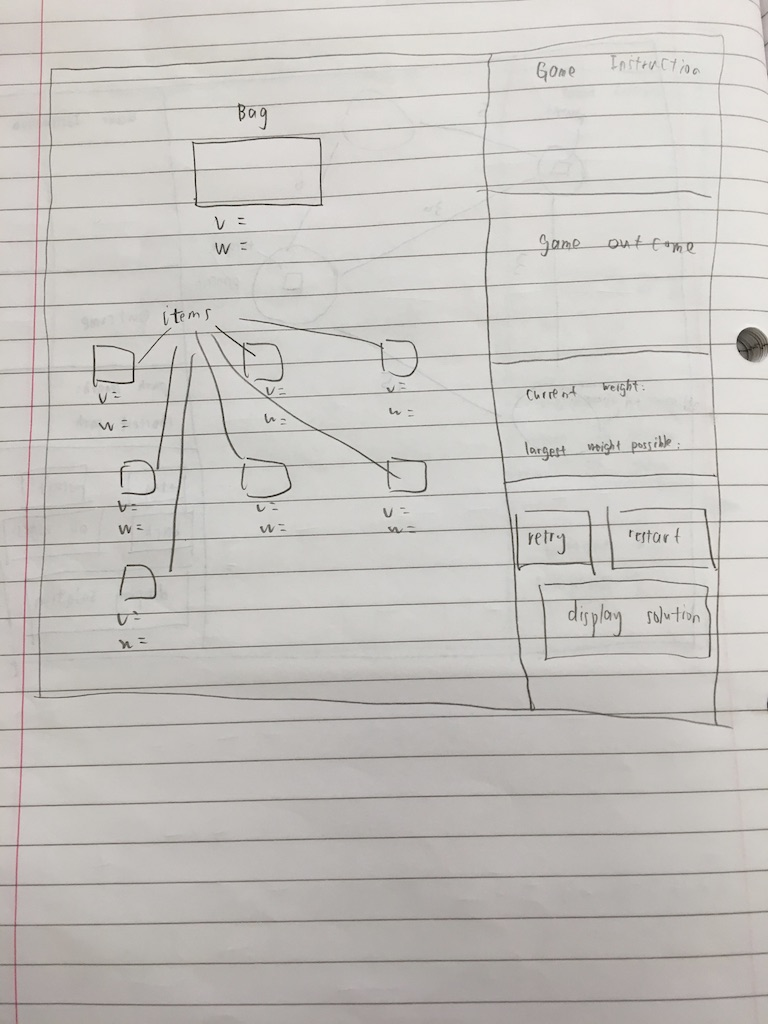 Bag
v =
w =
items
v =
w =
v =
w =
v =
w =
v =
w =
v =
w =
v =
w =
v =
w =
Game Instruction
Game outcome
Current weight:
largest weight possible:
retry
restart
display solution